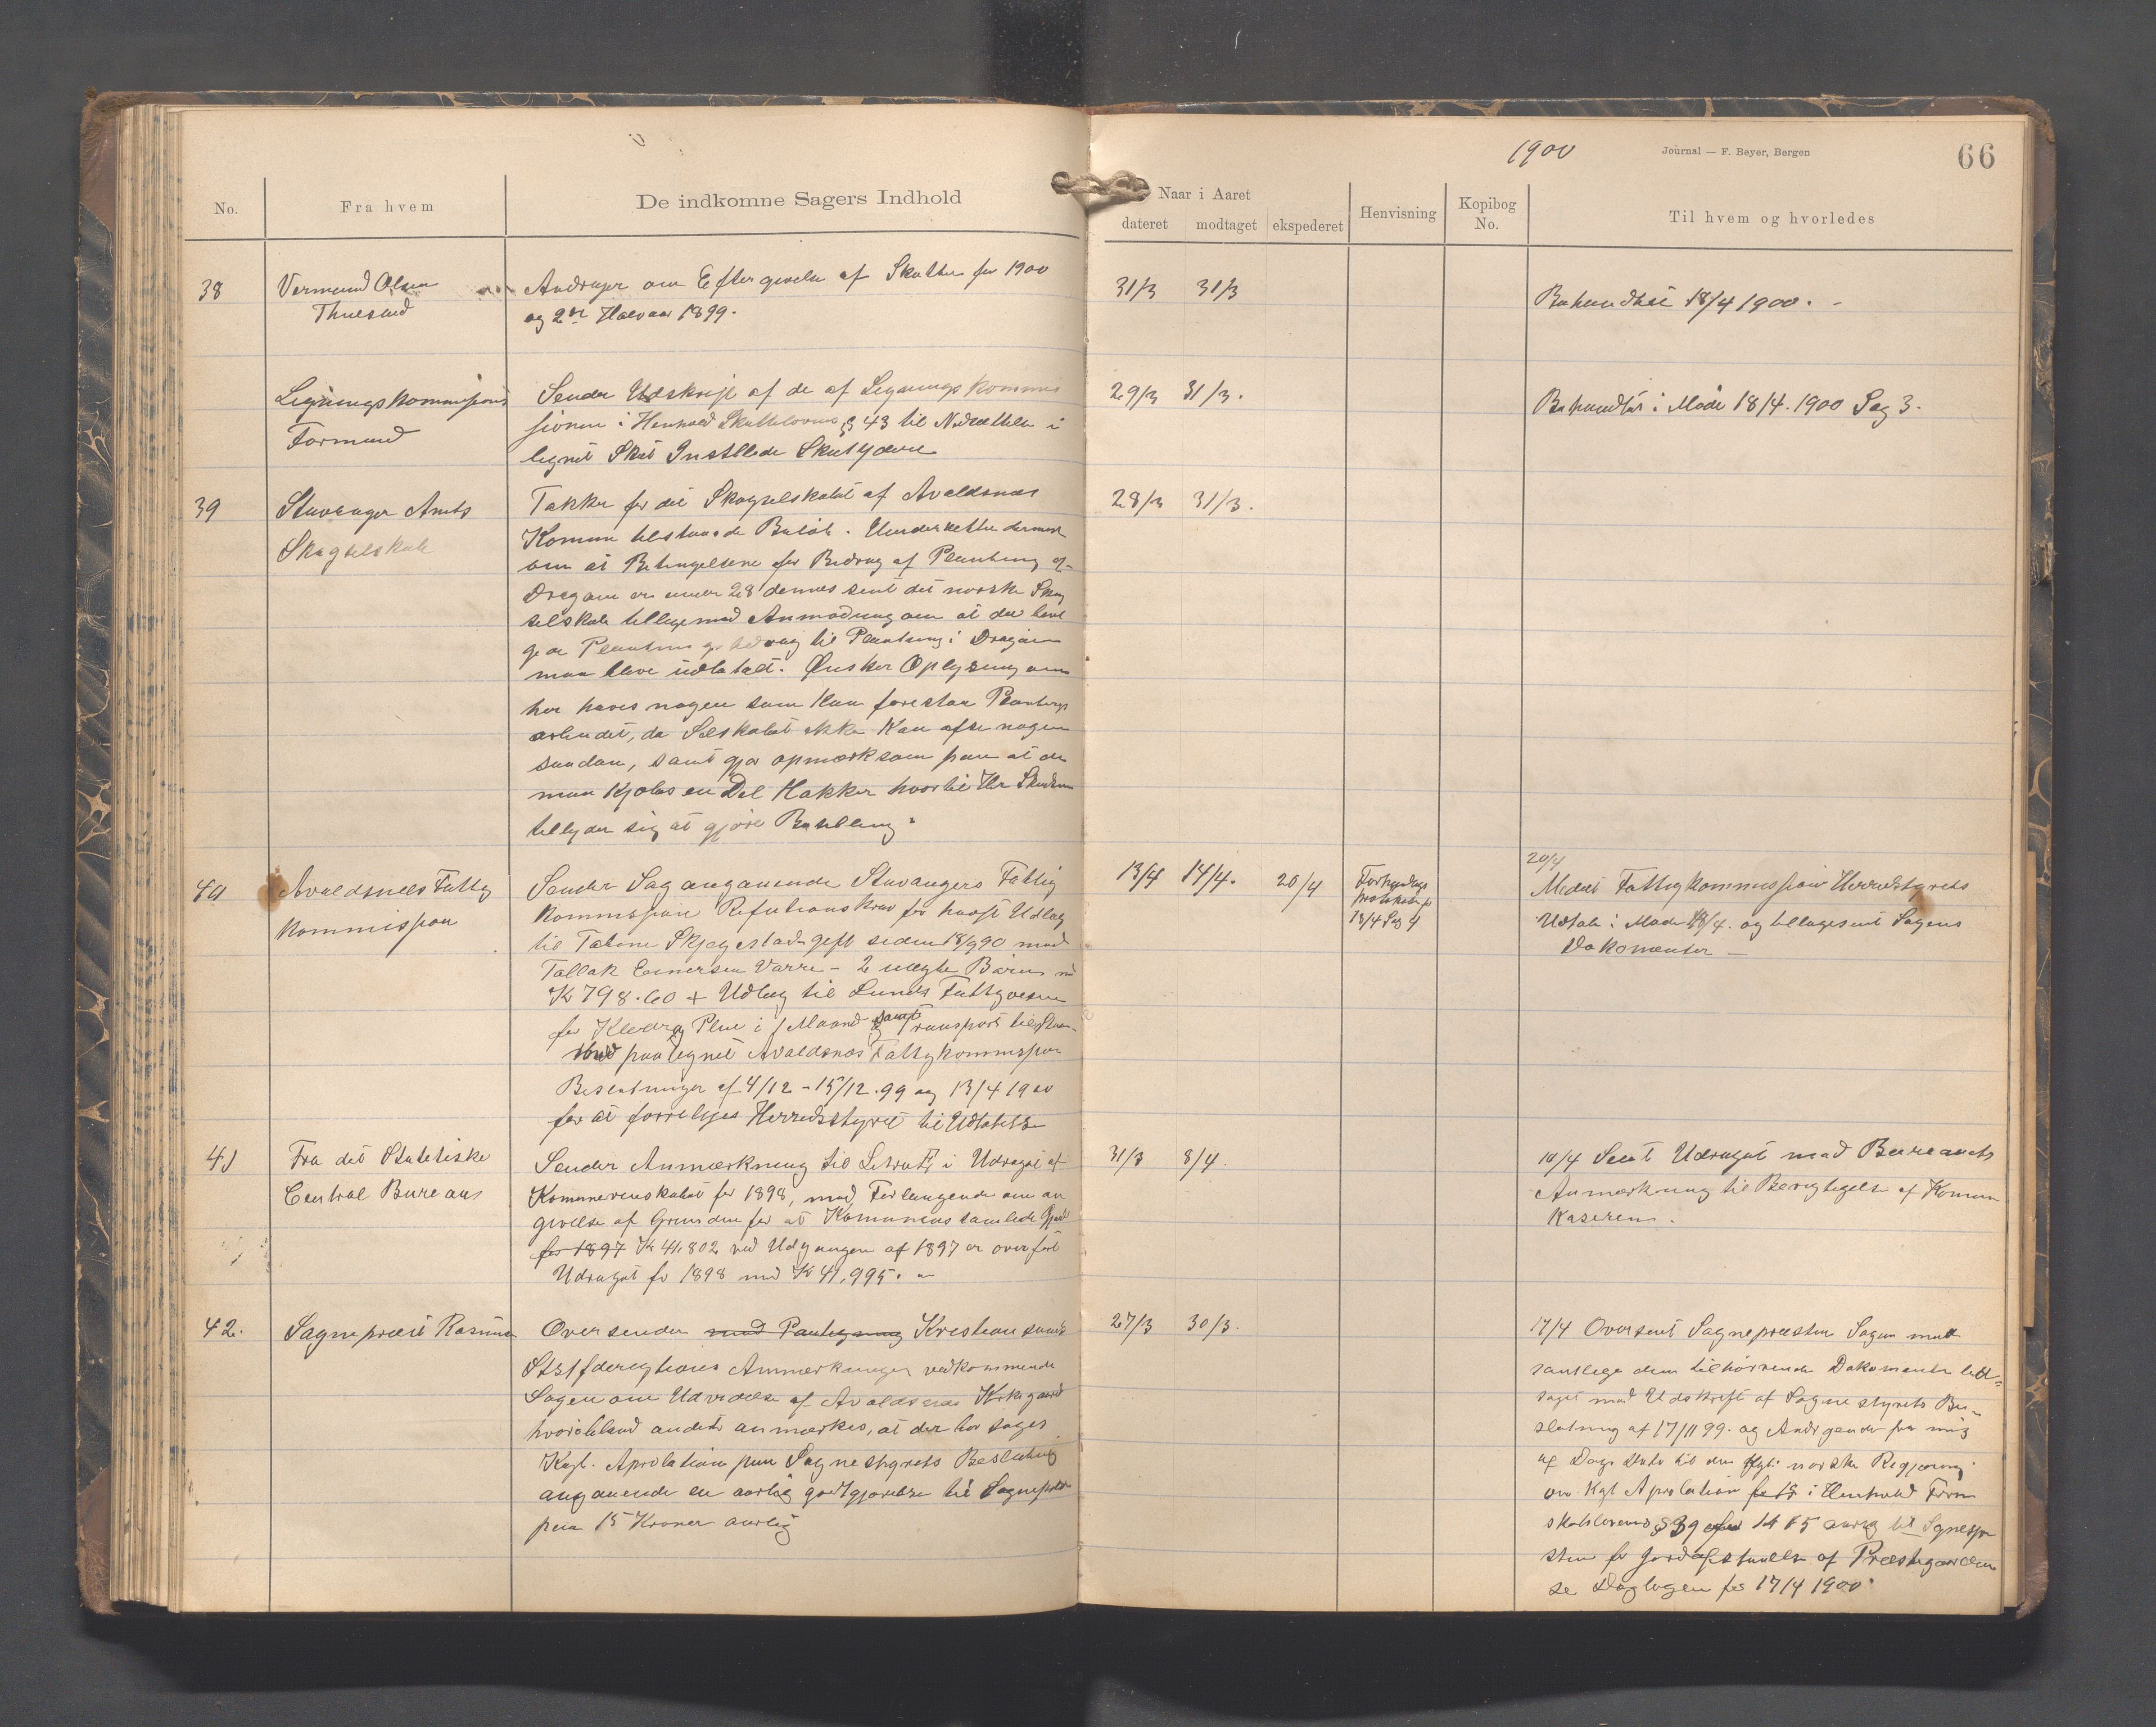 1900
Journal — F. Beyer, Bergen
66
No.
Fra hvem
De indkomne Sagers Indhold
Naar i Aaret
dateret
modtaget
ekspederet
Henvisning
Kopibog
No.
Til hvem og hvorledes
38
Vermund Olsen
Andrager om Eftergivelse af Skatten for 1900
og 2det Halvaar 1899.
31/3
31/3
Behandlet 18/4 1900. -
Ligningskommissions
Formand
Sender Udskrift af de af Lignings Kommis
sionen i Henhold Skatteloven § 43 til
lignet Skat Skatydere
29/3
31/3.
Behandlet i Møde 18/4. 1900 Sag 3.
39
Stavanger Amts
Skogselskab
Takker for det Skogselskabet af Avaldsnes
Komune tilstaaede Beløb. Underretter dernæst
om at Betingelserne for Bidrag af Plantning af
Dragøen er under 28 dennes sent det norske Skog
selskab tilligemed Anmodning om at det
til Plantning i Dragøen
maa blive udbetalt. Ønsker Oplysning om
her haves nogen som kan forestaa Plantnings
arbeidet, da Selskabet ikke kan afse nogen
saadan, samt gjør opmærksom paa at der
maa kjøbes en Del Hakker hvortil Hr
tilbyder sig at gjøre Bestilling.
28/3
31/3.
40
Avaldsnes Fattig
Kommission
Sender Sag angaaende Stavangers Fattig
Kommission Refutionskrav for havst Udlæg
til Taline Skjegestad gift siden 18/9 90 med
Tallak Einersen Varre - 2 uægte Børn
Kr 798.60 + Udlæg til Lunds Fattigvesen
for Klædr og Pleie i 1 Maaned samt Transport
paategnet Avaldsnes Fattigkommission
Beslutninger af 4/12 - 15/12.99 og 13/4 1900
for at forrelæges Herredsstyret til Udtalelse
13/4
14/4.
20/4
Forhandlings
protokolen
18/4 Sag 4
20/4
Medelt Fattigkommission Herredstyrets
Udtale i Møde 18/4. og tillagesent Sagens
Dokomenter —
41
Fra det Statistiske
Central Bureaus
Sender Anmærkning til Litra i Udraget af
Komunerenskabet for 1898, med Forlangende om an
givelse af Grunden for at Komunens samlede Gjæld
for 1897 Kr 41.802 ved Udgangen af 1897 er overført
Udraget for 1898 med Kr 41,995. -
31/3
8/4.
10/4 Sent Udraget med Bureauets
Anmærkning til Berigtigelse af Komune
Kasseren.
42.
Sognepræst Rasmus
Oversender med Paategning Kristiansands
Stiftderigtions Anmerkninger vedkommende
Sagen om Udvidelse af Avaldsnes Kirkegaard
hvoribland andet anmærkes, at der bør søges
Kngl. Aprobation paa Sognestyrets Beslutning
angaaende en aarlig godtgjørelse til Sognepresten
paa 15 Kroner aarlig
27/3
30/3.
17/4 Oversent Sognepræsten Sagen med
samtlige dem tilhørrende Dokomenter led-
saget med Udskrift af Sogne styrets Be-
slutning af 17/11 99. og Andragende fra mig
af Dags Dato til den Kgl. norske Regjering
om Kgl Aprobation i Henhold Form
skabslovens § 39 15 aarlig til Sognepre
sten for Jordafstaaelse af Præstegaarden
se Dagbogen for 17/4 1900.